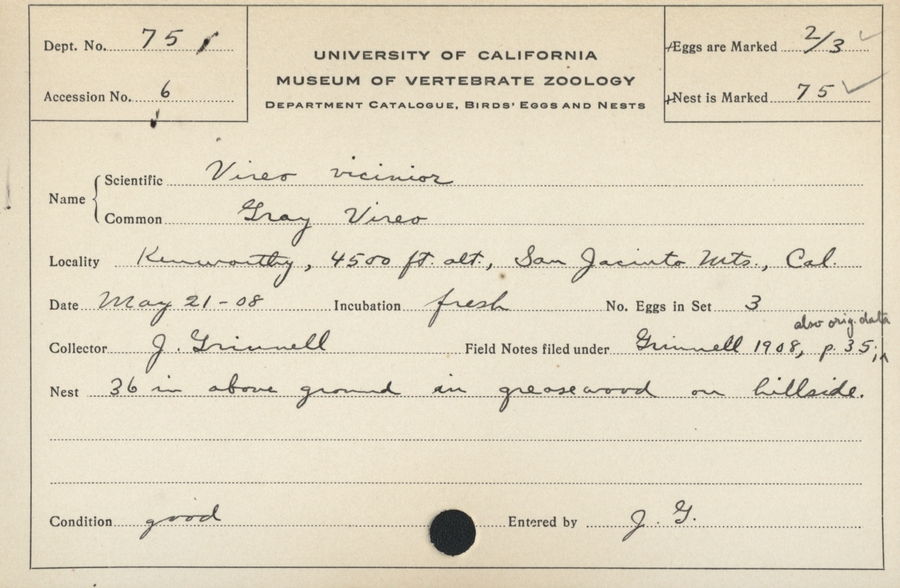 Dept. No. 75
UNIVERSITY OF CALIFORNIA
MUSEUM OF VERTEBRATE ZOOLOGY
DEPARTMENT CATALOGUE, BIRDS' EGGS AND NESTS
Eggs are Marked 2/3 ✓
Accession No. 6
Nest is Marked 75 ✓
Name { Scientific Vireo vicinior
Common Gray Vireo
Locality Kenworthy, 4500 ft. alt., San Jacinto Mts., Cal.
Date May 21-08 Incubation fresh No. Eggs in Set 3
also orig. data
Collector J. Grinnell Field Notes filed under Grinnell 1908, p. 35;
Nest 36 in above ground in greasewood on hillside.
Condition good Entered by J. G.